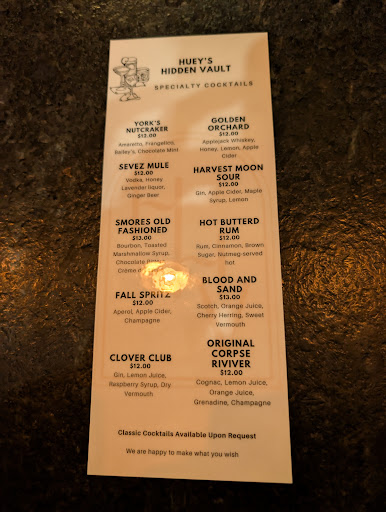 HUEY'S
HIDDEN VAULT
SPECIALTY COCKTAILS
YORK'S
NUTCRAKER
$12.00
Amaretto, Frangelico,
Bailey's, Chocolate Mint
SEVEZ MULE
$12.00
Vodka, Honey
Lavendar liquor,
Ginger Beer
SMORES OLD
FASHIONED
$13.00
Bourbon, Toasted
Marshmallow Syrup,
Chocolate
Crème
FALL SPRITZ
$12.00
Aperol, Apple Cider,
Champagne
CLOVER CLUB
$12.00
Gin, Lemon Juice,
Raspberry Syrup, Dry
Vermouth
GOLDEN
ORCHARD
$12.00
Applejack Whiskey,
Honey, Lemon, Apple
Cider
HARVEST MOON
SOUR
$12.00
Gin, Apple Cider, Maple
Syrup, Lemon
HOT BUTTERD
RUM
$12.00
Rum, Cinnamon, Brown
Sugar, Nutmag-served
hot
BLOOD AND
SAND
$13.00
Scotch, Orange Juice,
Cherry Herring, Sweet
Vermouth
ORIGINAL
CORPSE
RIVIVER
$12.00
Cognac, Lemon Juice,
Orange Juice,
Grenadine, Champagne
Classic Cocktails Available Upon Request
We are happy to make what you wish